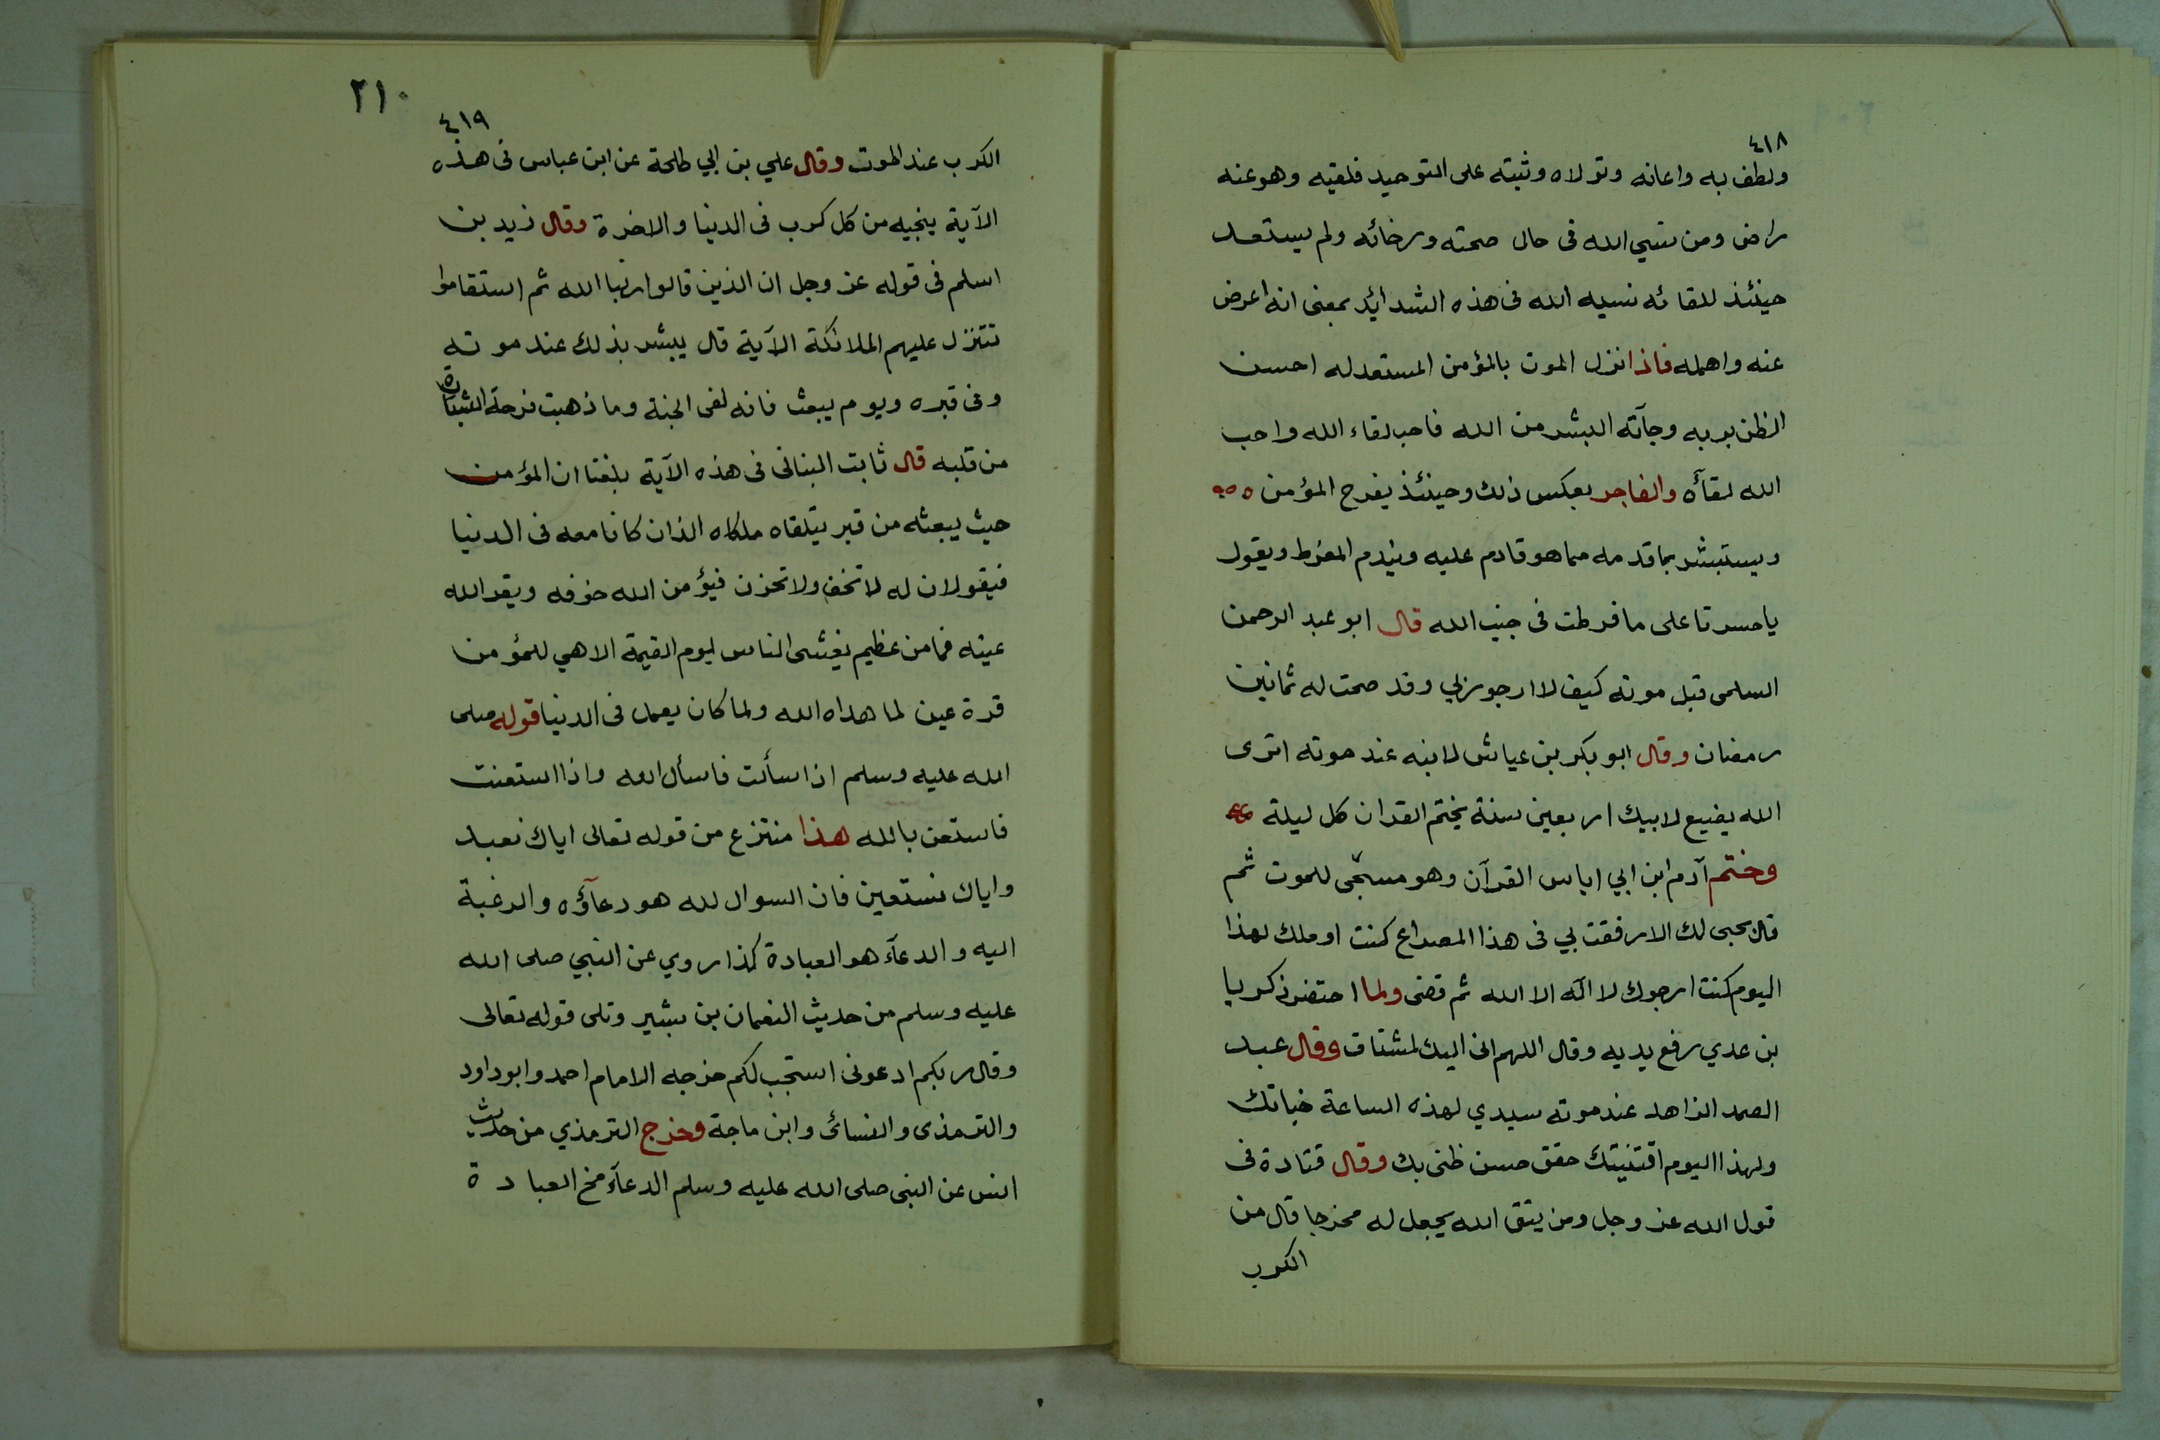 ٤١٨
ولطف به واعانه وتولاه وثبته على التوحيد فلقيه وهو عنه
راض ومن نسي الله فى حال صحته ورخائه ولم يستعد
حينئذ للقائه نسيه الله فى هذه الشدائد بمعنى انه اعرض
عنه واهمله فاذا نزل الموت بالمؤمن المستعد له احسن
الظن بربه وجآته البشر من الله فاحب لقاء الله واحب
الله لقآه والفاجر بعكس ذلك وحينئذ يفرح المؤمن
ويستبشر بما قدمه مما هو قادم عليه ويندم المفرط ويقول
ياحسرتا على ما فرطت فى جنب الله قال ابو عبد الرحمن
السلمى قبل موته كيف لا ارجو ربي وقد صمت له ثمانين
رمضان وقال ابو بكر بن عياش لابنه عند موته اترى
الله يضيع لابيك اربعين سنة يختم القران كل ليلة
وختم آدم ابن ابي اياس القرآن وهو مسجّى للموت ثم
قال بحبى لك الا رفقت بي فى هذا المصراع كنت اوملك لهذا
اليوم كنت ارجوك لا اله الا الله ثم قضى ولما احتضر زكريا
بن عدي رفع يديه وقال اللهم انى اليك لمشتاق وقال عبد
الصمد الزاهد عند موته سيدي لهذه الساعة خباتك
ولهذا اليوم اقتنيتك حقق حسن ظنى بك وقال قتادة فى
قول الله عز وجل ومن يتق الله يجعل له مخرجا قال من
الكرب
٢١٠
٤١٩
الكرب عند الموت وقال علي بن ابي طلحة عن ابن عباس فى هذه
الآية ينجيه من كل كرب فى الدنيا والاخرة وقال زيد بن
اسلم فى قوله عز وجل ان الذين قالوا ربنا الله ثم استقاموا
تتنزل عليهم الملائكة الآية قال يبشر بذلك عند موته
وفى قبره ويوم يبعث فانه لفى الجنة وما ذهبت فرحة البشارة
من قلبه قال ثابت البنانى فى هذه الآية بلغنا ان المؤمن
حيث يبعثه من قبر يتلقاه ملكاه الذان كانا معه فى الدنيا
فيقولان له لا تخف ولا تحزن فيؤمن الله خوفه ويقر الله
عينه فما من عظيم يغشى الناس ليوم القيمة الا هي للمؤمن
قرة عين لما هداه الله ولما كان يعمل فى الدنيا قوله صلى
الله عليه وسلم اذا سألت فاسأل الله واذا استعنت
فاستعن بالله هذا منتزع من قوله تعالى اياك نعبد
واياك نستعين فان السوال لله هو دعآؤه والرغبة
اليه والدعآء هو العبادة كذا روي عن النبي صلى الله
عليه وسلم من حديث النعمان بن بشير وتلى قوله تعالى
وقال ربكم ادعونى استجب لكم خرجه الامام احمد وابو داود
والترمذى والنسائى وابن ماجة وخرج الترمذي من حديث
انس عن النبى صلى الله عليه وسلم الدعآء مخ العبادة